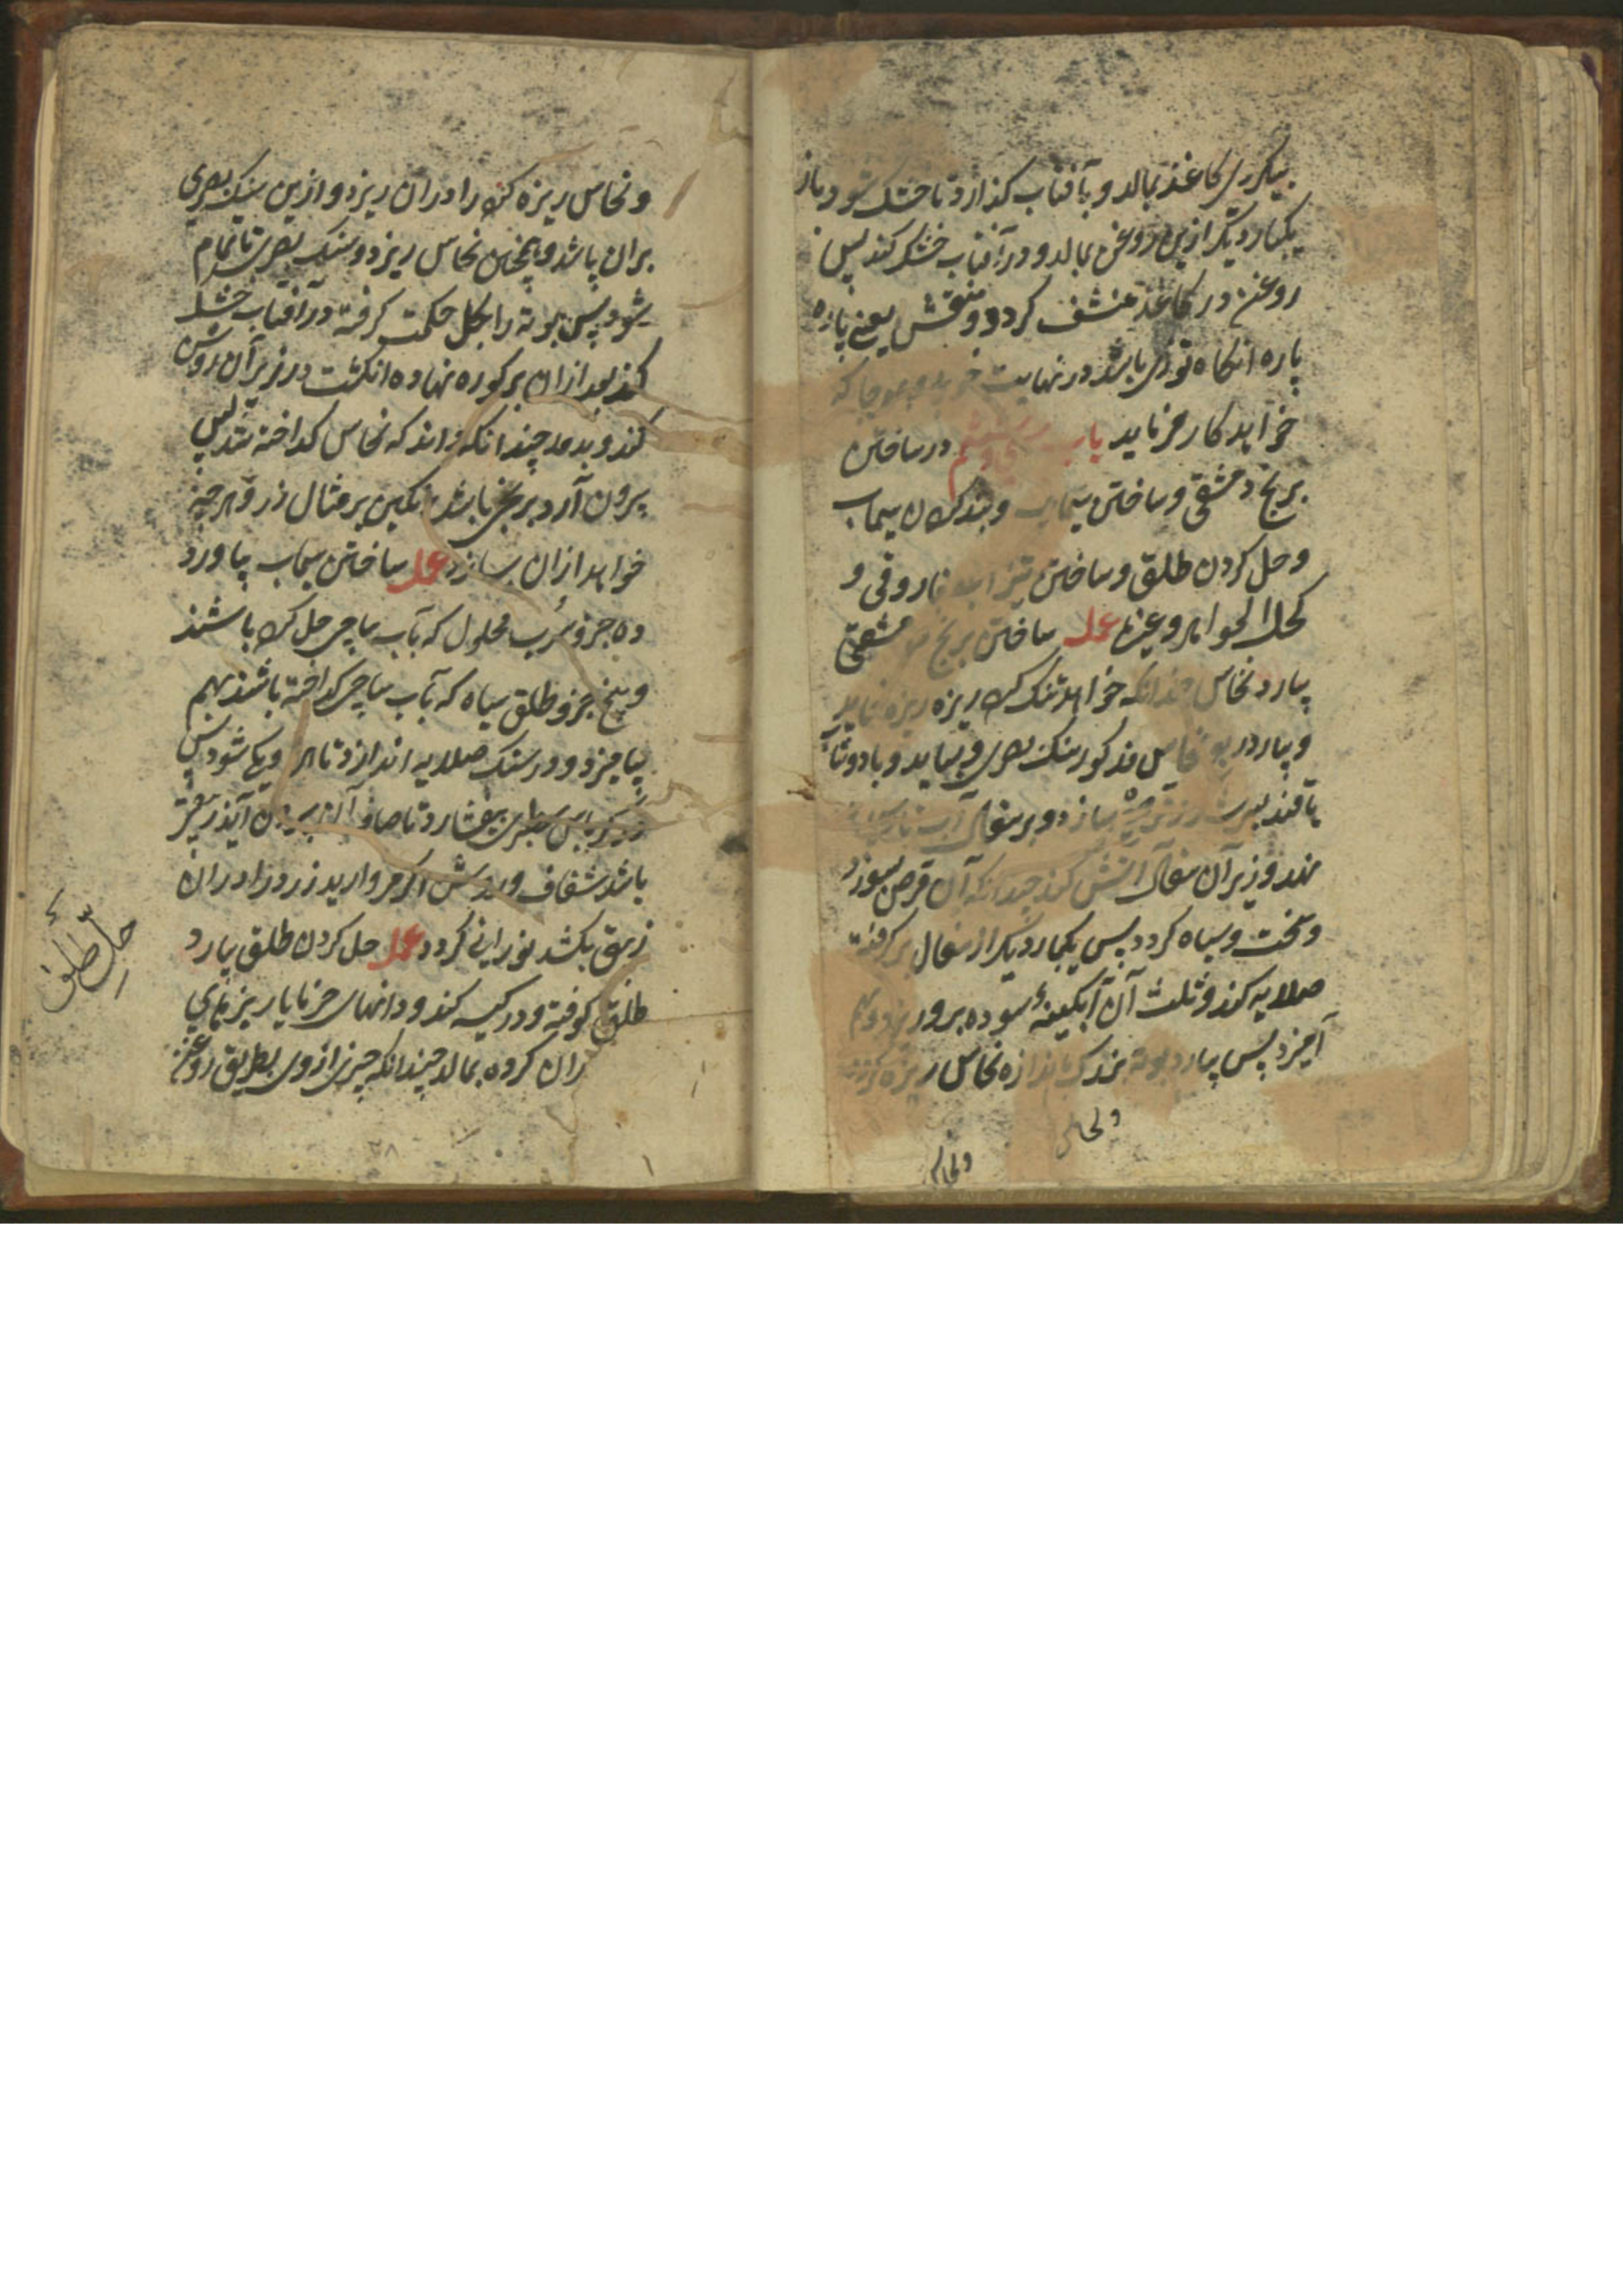 بیکروی کاغذ بمالد و بآفتاب گذارد تا خشک شود و باز
یکبار دیگر ازین روغن بمالد و در آفتاب خشک کند پس
روغن در کاغذ منشف گردد و منقش یعنی پاره
پاره انکاه توزی باشد در نهایت خوبی و هرجا که
خواهد کار فرماید باب در ساختن
برنج دمشقی و ساختن سیماب و بند کردن سیماب
و حل کردن طلق و ساختن تیزاب فاروقی و
کحل الجواهر و غیره عمل ساختن برنج دمشقی
بیارد نحاس چندانکه خواهد تنک کرده ریزه ریزه نماید
و بیارد نحاس مذکور سنک بصری و بساید و با دوشاب
یا قند بسرشد و قرص سازد و بر سفال آب نارسیده
نهد و زیر آن سفال آتش کند چندانکه آن قرص بسوزد
و سخت و سیاه کردد پس یکبار دیکر از سفال برکرفته
صلایه کند و ثلث آن آبکینهٔ سوده برو ریزد و بهم
آمیزد پس بیارد بوته بزرک باندازه نحاس ریزه کرده
و نحاس
و نحاس ریزه کرده را دران ریزد و ازین سنک بصری
بران پاشد و همچنین نحاس ریزد و سنک بصری تا تمام
شود پس بوته را بکل حکمت کرفته در آفتاب خشک
کند بعد ازان بر کوره نهاده انکشت در زیر آن روشن
کند و بدمد چندانکه داند که نحاس کداخته شد پس
بیرون آرد برنجی باشد رنکین بر مثال زر و هرچه
خواهد ازان بسازد عمل ساختن سیماب بیاورد
ده جزو سُرب محلول که بآب ساجی حل کرده باشند
و پنج جزو طلق سیاه که بآب ساجی کداخته باشند بهم
بیامیزد و در سنک صلایه اندازد تا هر دو یکی شود پس
در کرباس سطبری بیفشارد تا صاف آن بیرون آید زیبقی
باشد شفاف و روشن اکر مروارید زرد را دران
زیبق بکشد نورانی کردد عمل حل کردن طلق بیارد
طلق کوفته و در کیسه کند و دانهای خرما یا ریزهای
دران کرده بمالد چندانکه چیزی ازوی بطریق روغن
حل طلق